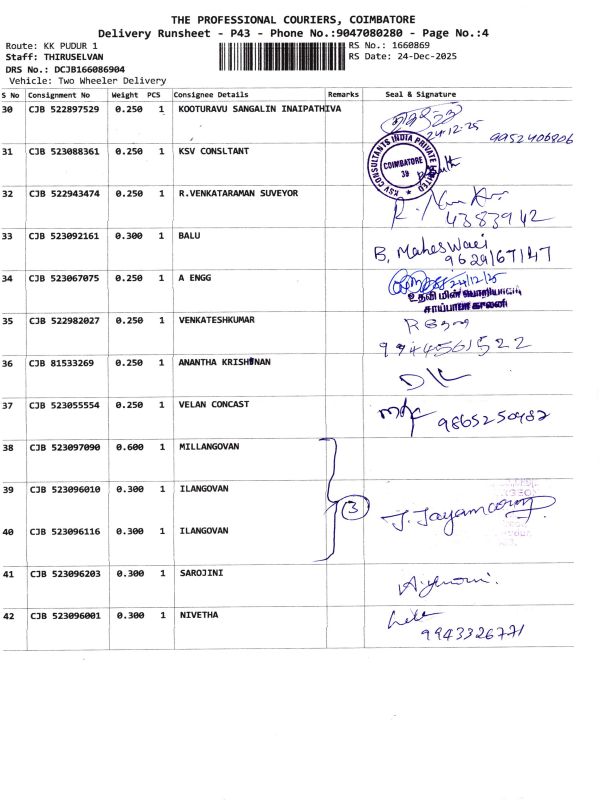 THE PROFESSIONAL COURIERS, COIMBATORE
Delivery Runsheet - P43 - Phone No.:9047080280 - Page No.:4
Route: KK PUDUR 1 RS No.: 1660869
Staff: THIRUSELVAN RS Date: 24-Dec-2025
DRS No.: DCJB166086904
Vehicle: Two Wheeler Delivery
S No Consignment No Weight PCS Consignee Details Remarks Seal & Signature
30 CJB 522897529 0.250 1 KOOTURAVU SANGALIN INAIPATHIVA
24-12-25
9952406806
31 CJB 523088361 0.250 1 KSV CONSLTANT
KSV CONSULTANTS INDIA PRIVATE LIMITED
COIMBATORE
38
32 CJB 522943474 0.250 1 R.VENKATARAMAN SUVEYOR
4383942
33 CJB 523092161 0.300 1 BALU
B. Maheswari
9629167147
34 CJB 523067075 0.250 1 A ENGG
24/12/25
உதவி மின் பொறியாளர்
சாய்பாபா காலனி
35 CJB 522982027 0.250 1 VENKATESHKUMAR
9944561522
36 CJB 81533269 0.250 1 ANANTHA KRISHNAN
37 CJB 523055554 0.250 1 VELAN CONCAST
9865250482
38 CJB 523097090 0.600 1 MILLANGOVAN
39 CJB 523096010 0.300 1 ILANGOVAN
3
40 CJB 523096116 0.300 1 ILANGOVAN
41 CJB 523096203 0.300 1 SAROJINI
42 CJB 523096001 0.300 1 NIVETHA
9943326771